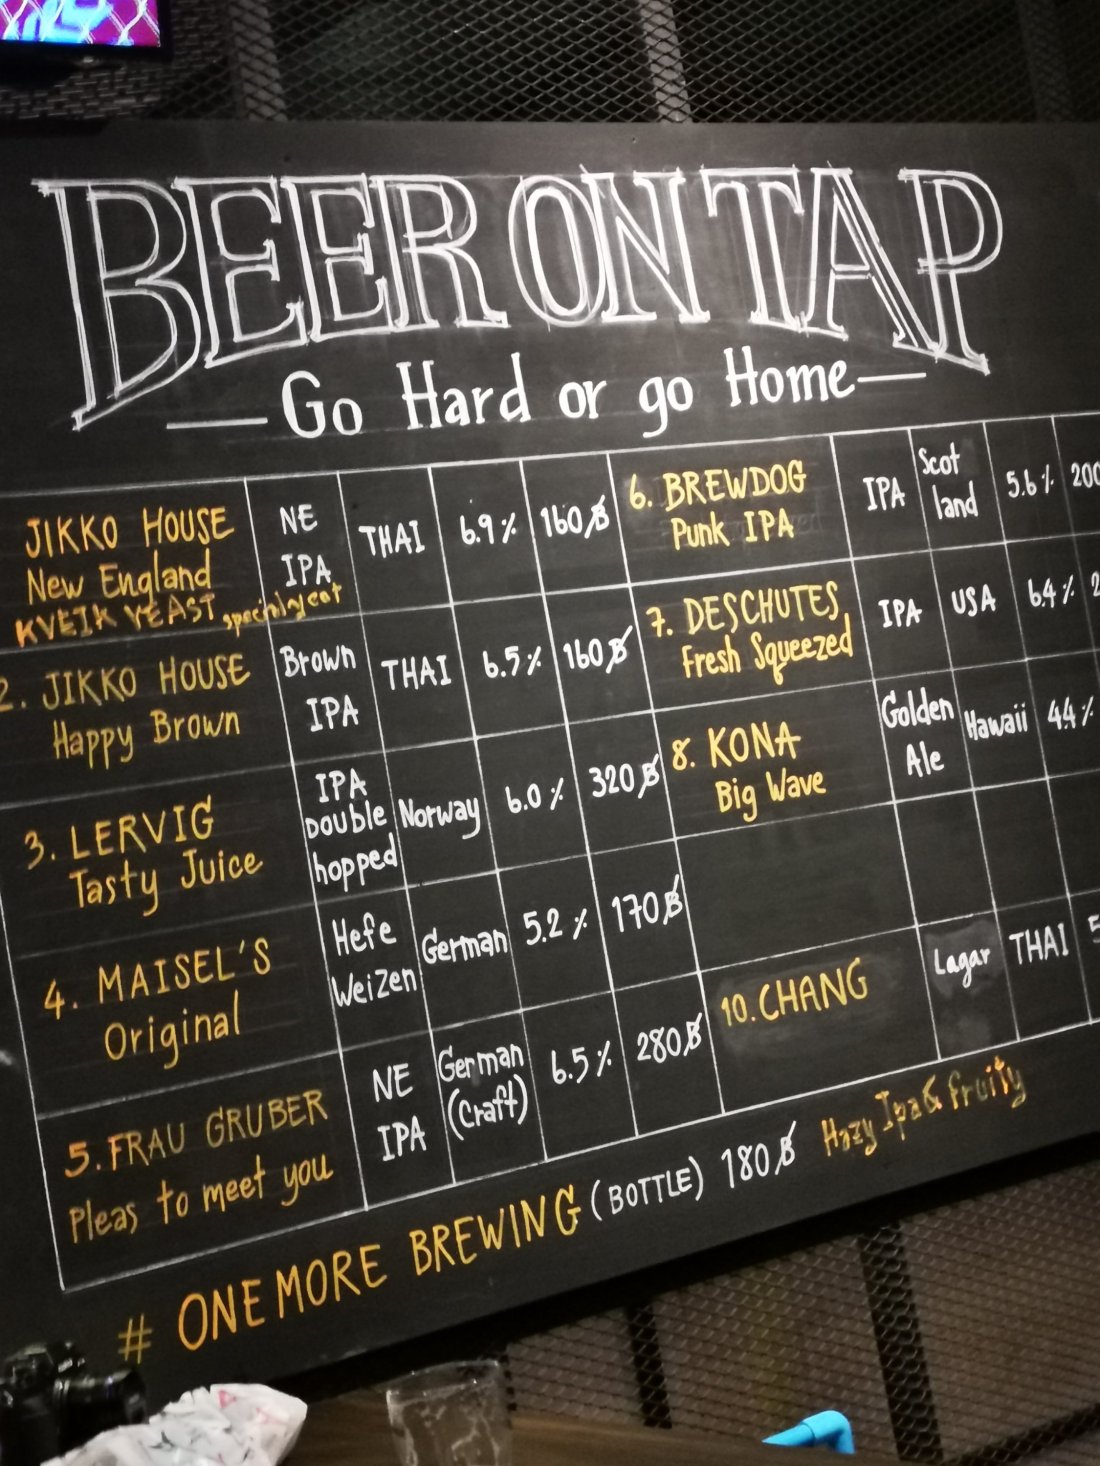 BEER ON TAP
Go Hard or go Home
JIKKO HOUSE
New England
KVEIK YEAST
NE
IPA
THAI
6.9%
160฿
2. JIKKO HOUSE
Happy Brown
Brown
IPA
THAI
6.5%
160฿
3. LERVIG
Tasty Juice
IPA
Double
hopped
Norway
6.0%
320฿
4. MAISEL'S
Original
Hefe
Weizen
German
5.2%
170฿
5. FRAU GRUBER
Pleas to meet you
NE
IPA
German
(Craft)
6.5%
280฿
6. BREWDOG
Punk IPA
IPA
Scot
land
5.6%
200
7. DESCHUTES
Fresh Squeezed
IPA
USA
6.4%
8. KONA
Big Wave
Golden
Ale
Hawaii
4.4%
10. CHANG
Lagar
THAI
# ONE MORE BREWING (BOTTLE) 180฿ Hazy Ipa & fruity